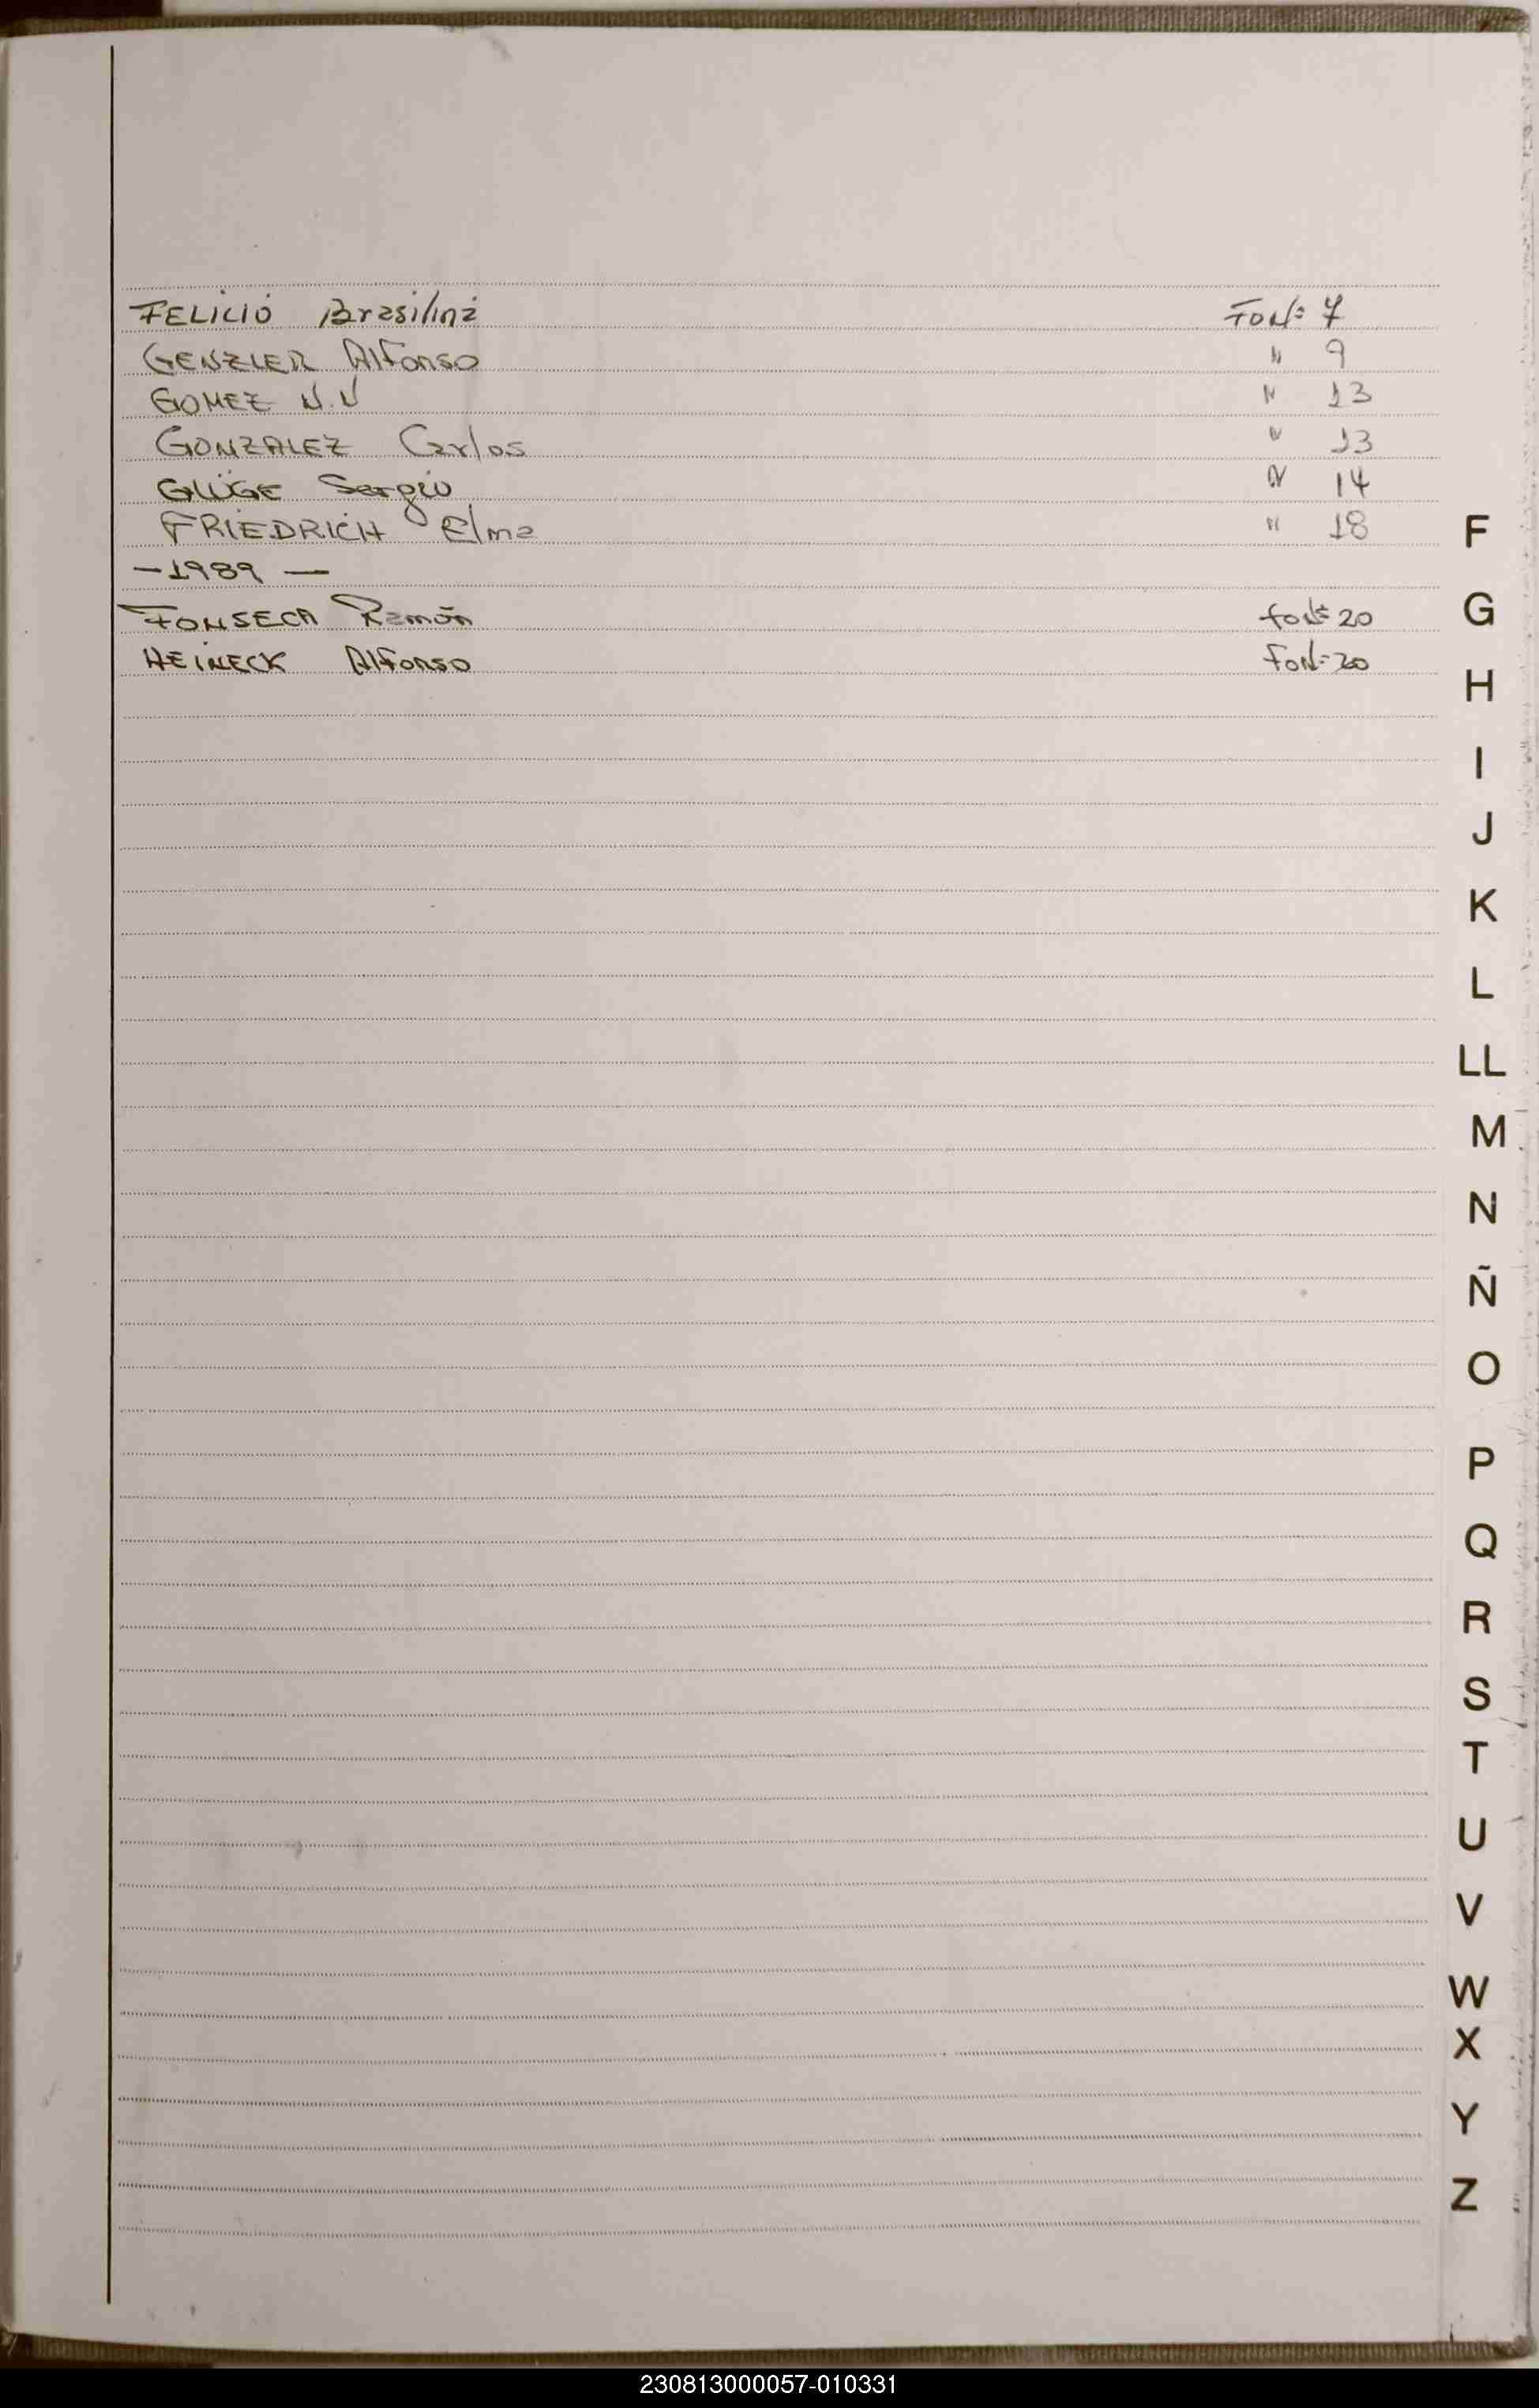 FELICIO Brasilina Fol= 7
GENZLER Alfonso " 9
GOMEZ N.N " 13
GONZALEZ Carlos " 13
GLÜGE Sergio " 14
FRIEDRICH Elma " 18
-1989-
FONSECA Ramón fol= 20
HEINECK Alfonso Fol= 20
F
G
H
I
J
K
L
LL
M
N
Ñ
O
P
Q
R
S
T
U
V
W
X
Y
Z
230813000057-010331